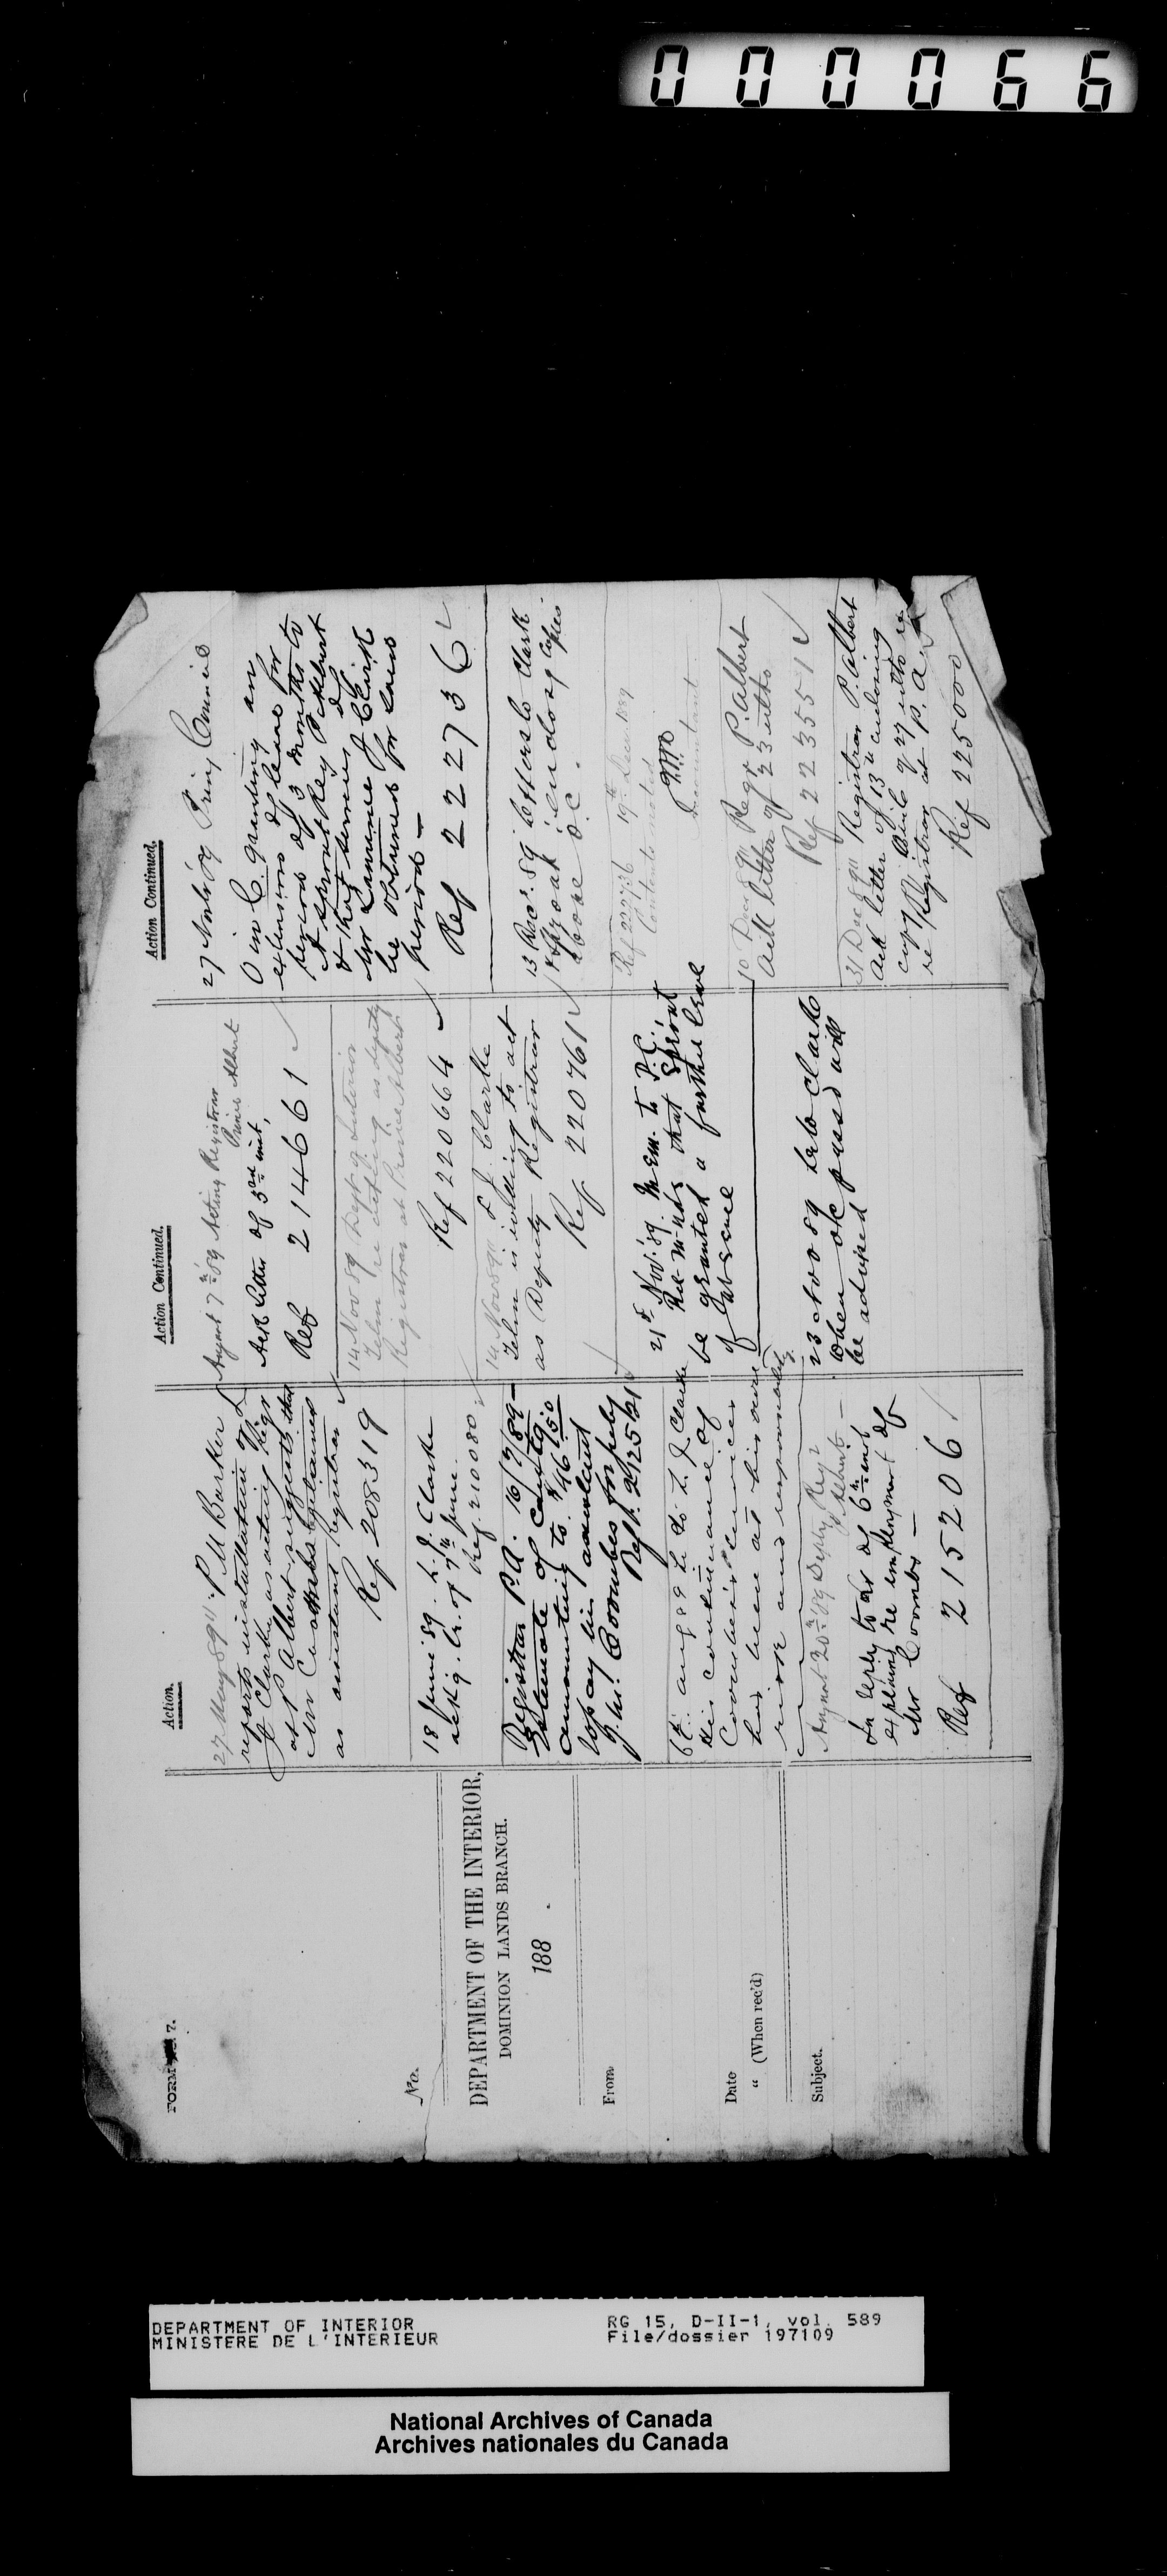 000066
FORM No. 7.
No.
DEPARTMENT OF THE INTERIOR,
DOMINION LANDS BRANCH.
188 .
From
Date
" (When rec'd)
Subject.
Action.
27 May 89 " P M Barker
reports installation of L
J Clarke as acting Regr
at P Albert suggests that
Mr Coombs be retained
as assistant registrar
Ref 208319
18 June 89. L. J. Clarke
ackg. lr. of 7th June.
Ref. 210080
Registrar P.A. 16/7/89
Estimate of Contg.
amounting to $46.50
to pay his assistant
J. W. Coombes for July
Ref. 212521
6th Aug 89 L to L J Clarke
His continuance of
Coombes's services
has been at his own
risk and responsibility.
August 20th 89 Depty Regr
P Albert
In reply to lr of 6th inst
explains re employment of
Mr Coombs
Ref 215206
Action Continued.
August 7th 89 Acting Registrar
Prince Albert
Ack letter of 3rd inst,
Ref 214661
14 Nov 89 Dept of Interior
Telm re Clarke acting as deputy
Registrar at Prince Albert
Ref 220664
14 Nov 89 " L J. Clarke
Telm is willing to act
as Deputy Registrar
Ref 220761
21st Nov. 89. Mem. to P.C.
Rec-m-nds that Sproat
be granted a further leave
of absence
23 Nov 89 L to Clarke
When o/c passed will
be advised
Action Continued.
27 Nov 89 Privy Council
O in C. granting an
extension of leave for
period of 3 months to
A Sproat Reg P Albert
& that services of
Mr Lawrence J Clark
be obtained for said
period —
Ref 222736
13 Decr. 89 letters to Clark
& Sproat enclosing copies
above O.C.
Ref 222736 19th Dec. 1889
Contents noted
Accountant
10 Dec 89 " Regr P. Albert
Ack letter of 23 ulto
Ref 223551
31 Dec 89 " Registrar P. Albert
Ack letter of 13th enclosing
copy OinC of 27 ulto
re Registrar at P. A.
Ref 225000
DEPARTMENT OF INTERIOR
MINISTERE DE L'INTERIEUR
RG 15, D-II-1, vol. 589
File/dossier 197109
National Archives of Canada
Archives nationales du Canada